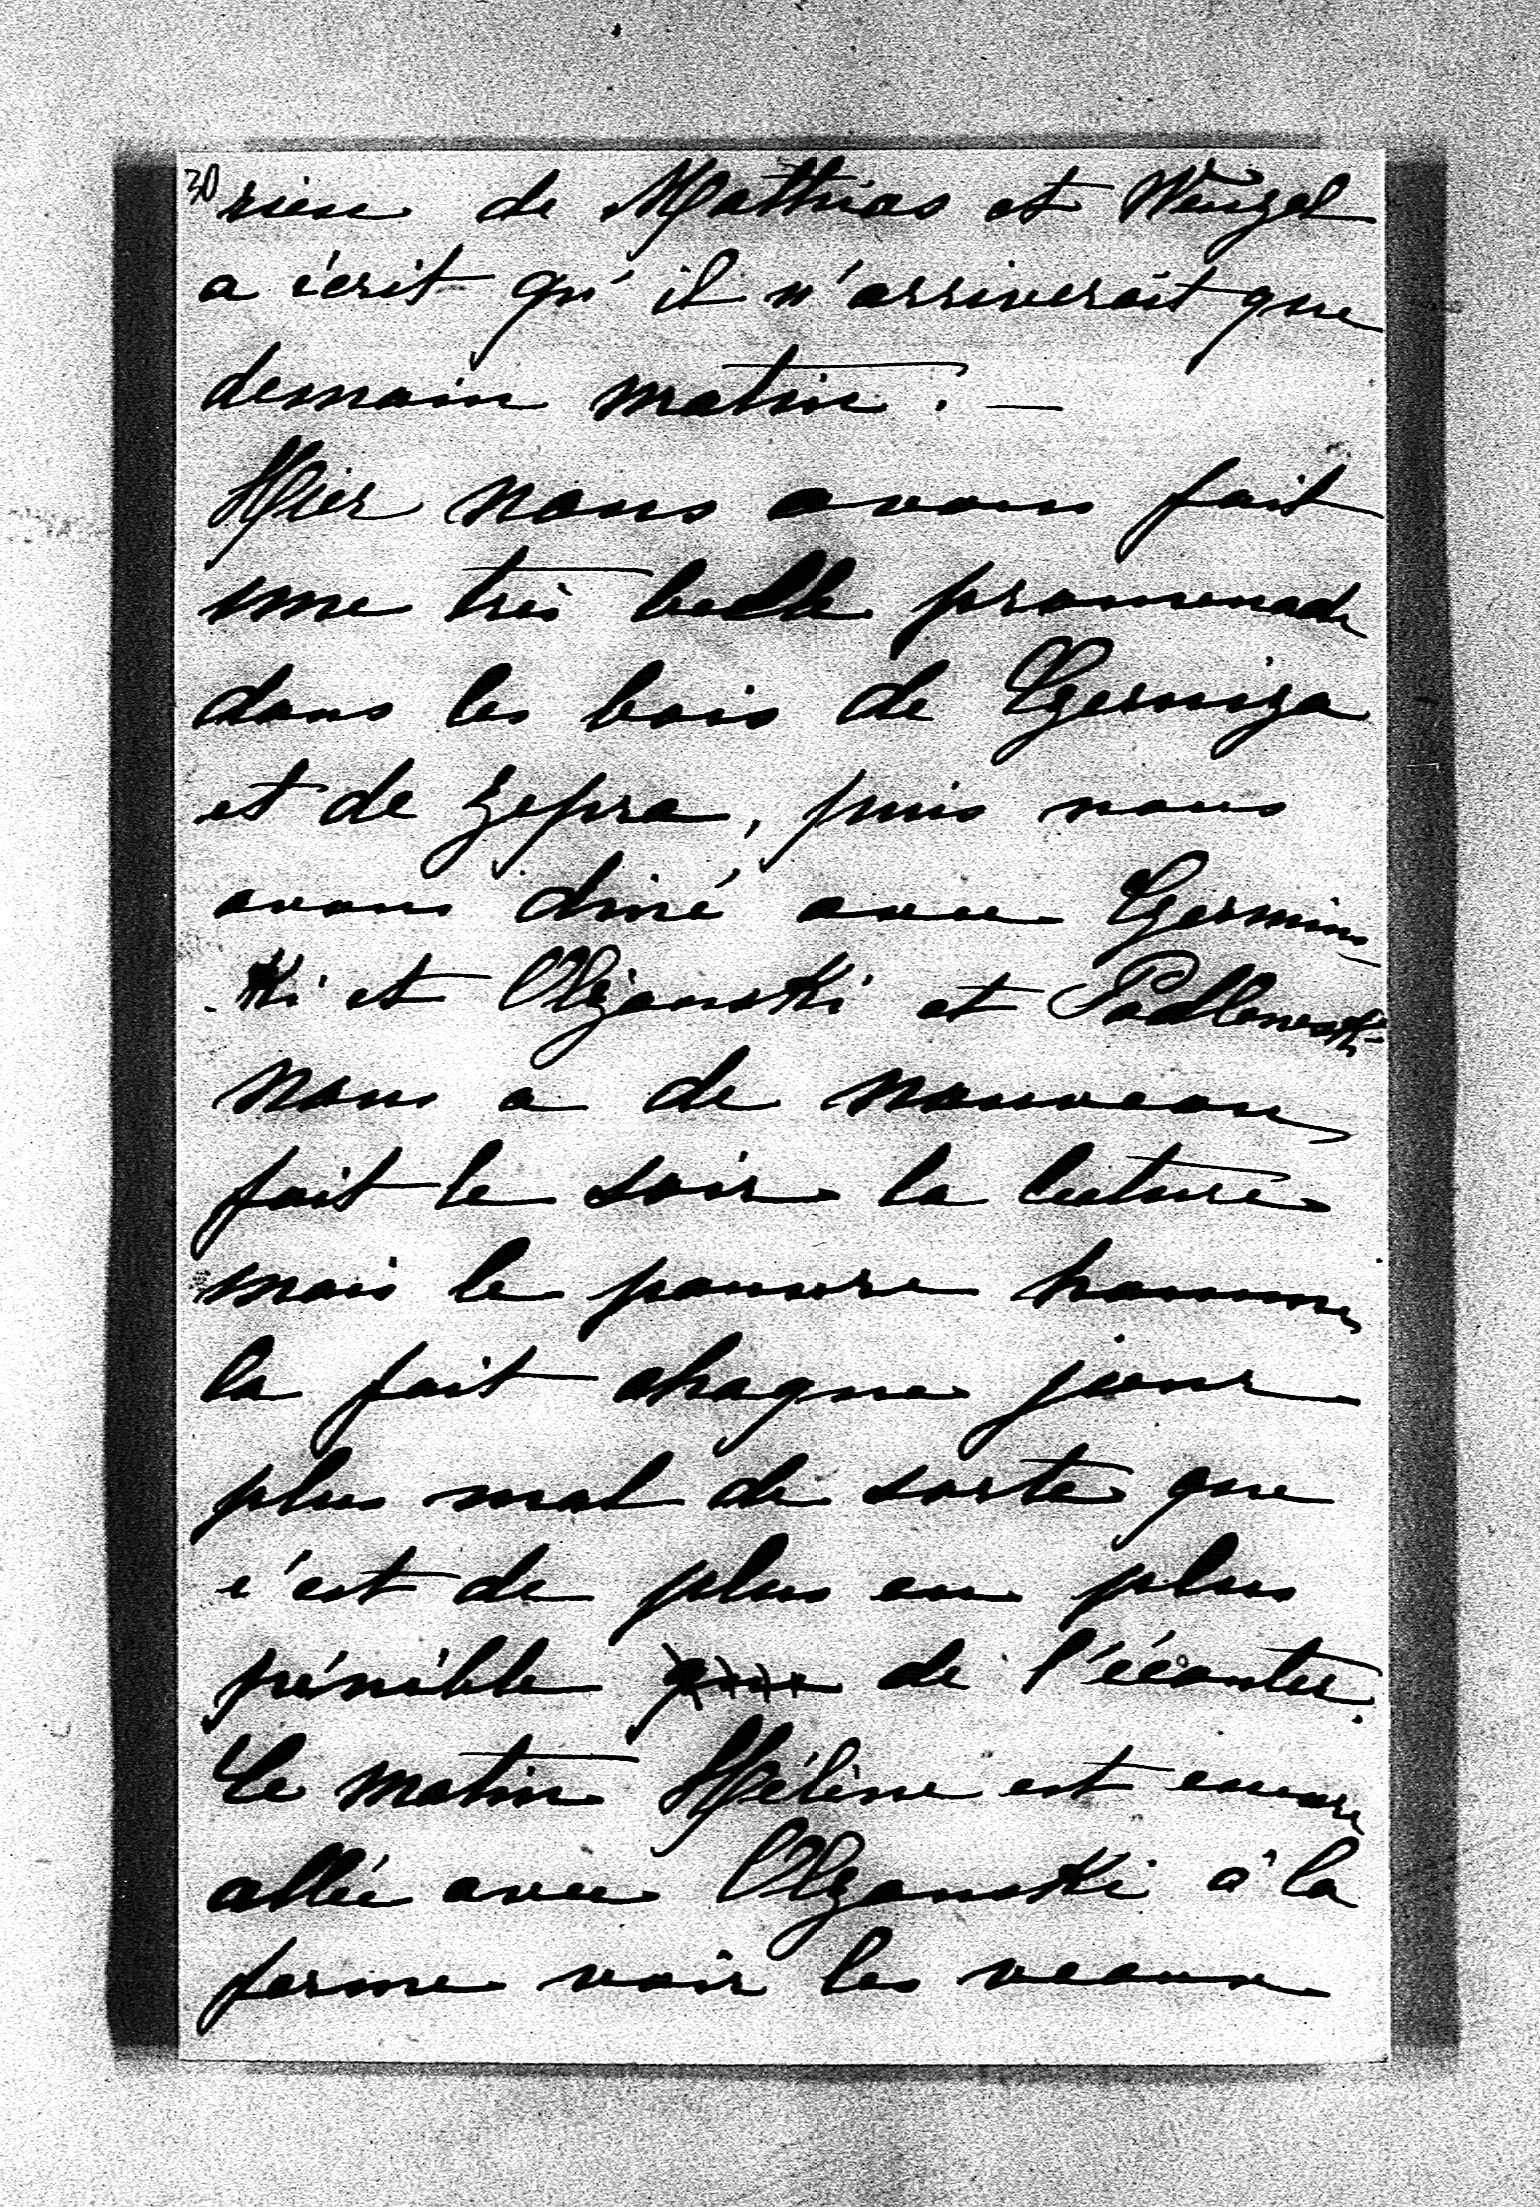 30 rien de Mathias et Wenzel
a écrit qu'il n'arriverait que
demain matin. —
Hier nous avons fait
une très belle promenade
dans les bois de Czerniza
et de Zepra, puis nous
avons diné avec Czermins
-ki et Olzanski et Podlewski
nous a de nouveau
fait le soir la lecture
mais le pauvre homme
la fait chaque jour
plus mal de sorte que
c'est de plus en plus
pénible de l'écouter.
Le matin Hélène est encore
allée avec Olzanski à la
ferme voir les veaux